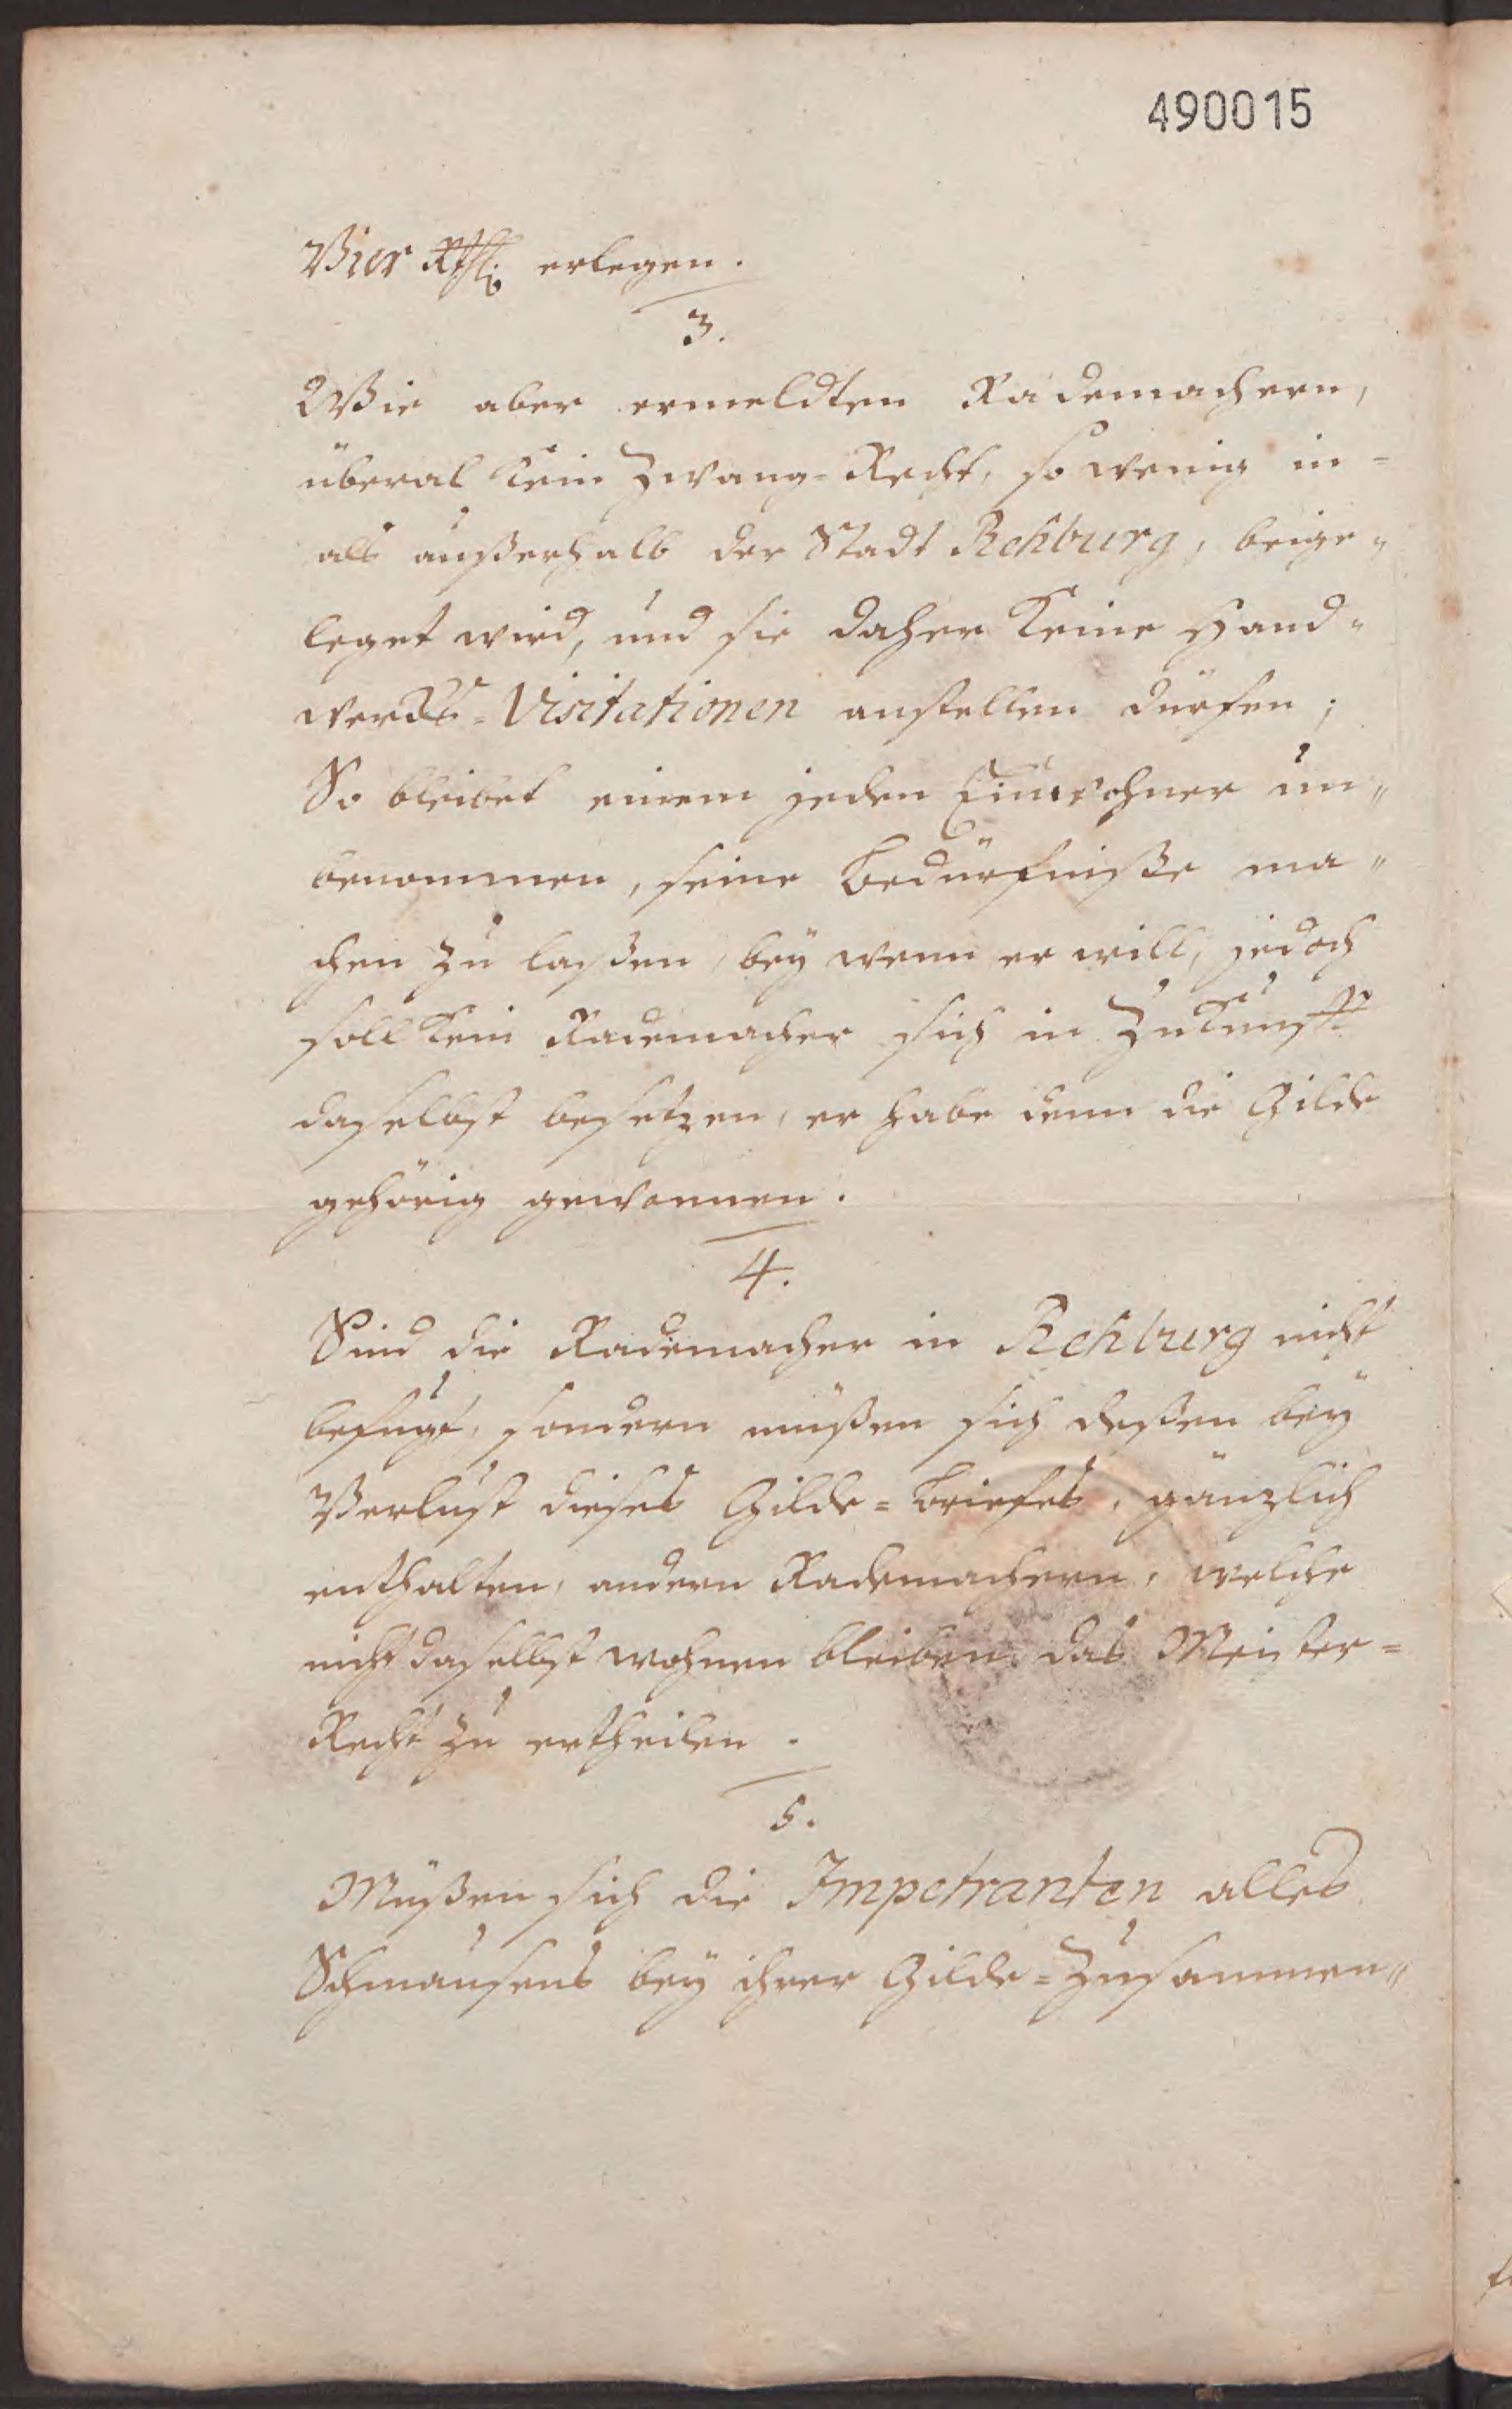 490015
Vier Rthl. erlegen.
3.
Wie aber ermeldten Rademachern,
überal kein Zwang=Recht, so wenig in=
als außerhalb der Stadt Rehburg, beige„
leget wird, und sie daher keine Hand„
wercks=Visitationen anstellen dürfen;
So bleibet einem jeden Einwohner un„
benommen, seine Bedürfniße ma„
chen zu laßen, bey wem er will, jedoch
soll kein Rademacher sich in Zukunfft
daselbst besetzen, er habe denn die Gilde
gehörig gewonnen.
4.
Sind die Rademacher in Rehburg nicht
befugt, sondern müßen sich deßen bey
Verlust dieses Gilde=Briefes, gänzlich
enthalten, andern Rademachern, welche
nicht daselbst wohnen bleiben, das Meister=
Recht zu ertheilen.
5.
Müßen sich die Impetranten alles
Schmausens bey ihrer Gilde=Zusammen„